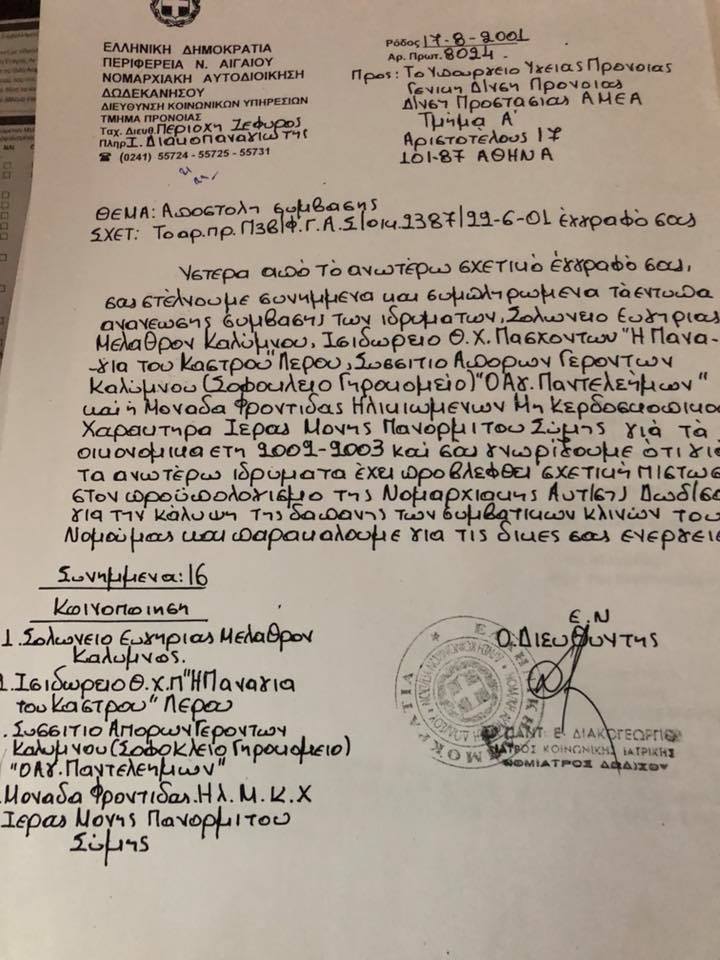 ΕΛΛΗΝΙΚΗ ΔΗΜΟΚΡΑΤΙΑ
ΠΕΡΙΦΕΡΕΙΑ Ν. ΑΙΓΑΙΟΥ
ΝΟΜΑΡΧΙΑΚΗ ΑΥΤΟΔΙΟΙΚΗΣΗ
ΔΩΔΕΚΑΝΗΣΟΥ
ΔΙΕΥΘΥΝΣΗ ΚΟΙΝΩΝΙΚΩΝ ΥΠΗΡΕΣΙΩΝ
ΤΜΗΜΑ ΠΡΟΝΟΙΑΣ
Ταχ. Διευθ. Περιοχη Ζεφυρος
Πληρ. Ι. Διακοπαναγιωτης
☎ (0241) 55724 - 55725 - 55731
Ρόδος 17-8-2001
Αρ. Πρωτ. 8024
Προς: Το Υπουργειο Υγειας Προνοιας
Γενικη Δ/νση Προνοιας
Δ/νση Προστασιας ΑΜΕΑ
Τμημα Α'
Αριστοτελους 17
101-87 ΑΘΗΝΑ
ΘΕΜΑ: Αποστολη συμβασης
ΣΧΕΤ: Το αρ. πρ. Π3β/Φ.Γ.Α.Σ/οικ. 2387/22-6-01 έγγραφό σας
Υστερα από το ανωτέρω σχετικό έγγραφό σας,
σας στέλνουμε συνημμενα και συμπληρωμενα τα έντυπα
ανανεωσης συμβασης των ιδρυματων, Σολωνειο Ευγηριας
Μελαθρον Καλύμνου, Ισιδωρειο Θ.Χ. Πασχοντων "Η Πανα-
-για του Καστρου" Λερου, Συσσιτιο Απορων Γεροντων
Καλυμνου (Σοφοκλειο Γηροκομειο) "Ο Αγ. Παντελεήμων"
και η Μοναδα Φροντιδας Ηλικιωμενων Μη Κερδοσκοπικο
Χαρακτηρα Ιερας Μονης Πανορμιτου Σύμης για τα
οικονομικα ετη 2002-2003 και σας γνωρίζουμε ότι για
τα ανωτέρω ιδρυματα έχει προβλεφθει σχετική πιστωσ
στον προϋπολογισμο της Νομαρχιακης Αυτ/σης Δωδ/σο
για την κάλυψη της δαπανης των συμβατικων κλινών του
Νομού μας και παρακαλουμε για τις δικες σας ενεργειε
Συνημμενα: 16
Κοινοποιηση
1. Σολωνειο Ευγηριας Μελαθρον
Καλυμνος.
Ισιδωρειο Θ.Χ.Π "Η Παναγια
του Καστρου" Λερου
. Συσσιτιο Απορων Γεροντων
Καλυμνου (Σοφοκλειο Γηροκομειο)
"Ο Αγ. Παντελεημων"
. Μοναδα Φροντιδας. Ηλ. Μ.Κ.Χ
Ιερας Μονης Πανορμιτου
Σύμης
Ε.Ν
Ο. Διευθυντης
ΠΑΝΤ. Ε. ΔΙΑΚΟΓΕΩΡΓΙΟ
ΙΑΤΡΟΣ ΚΟΙΝΩΝΙΚΗΣ ΙΑΤΡΙΚΗΣ
ΝΟΜΙΑΤΡΟΣ ΔΩΔ/ΣΟΥ